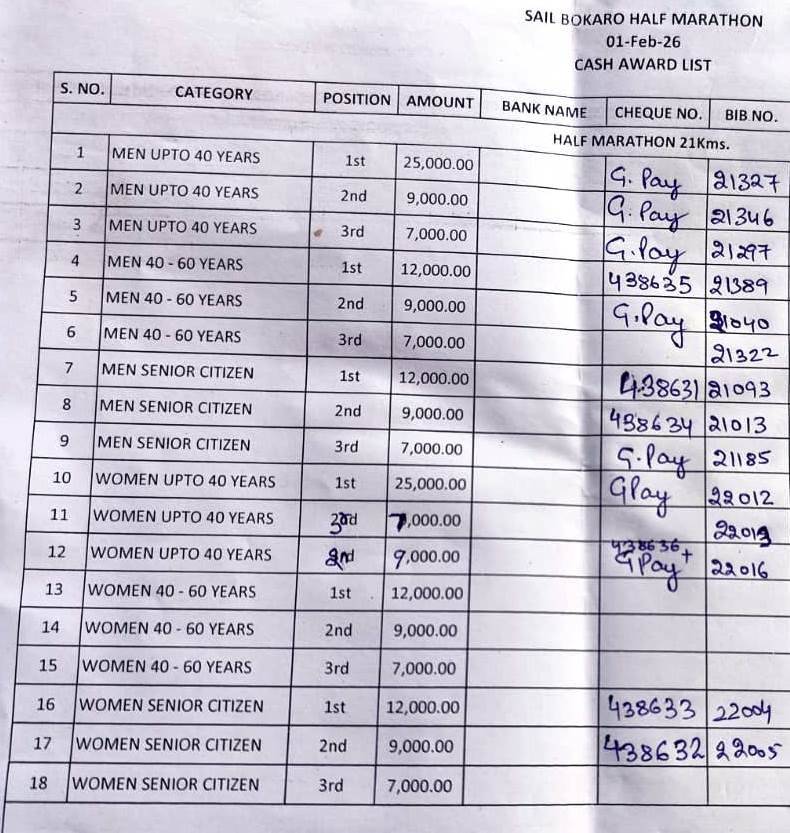 SAIL BOKARO HALF MARATHON
01-Feb-26
CASH AWARD LIST
S. NO. CATEGORY POSITION AMOUNT BANK NAME CHEQUE NO. BIB NO.
HALF MARATHON 21Kms.
1 MEN UPTO 40 YEARS 1st 25,000.00 G. Pay 21327
2 MEN UPTO 40 YEARS 2nd 9,000.00 G. Pay 21346
3 MEN UPTO 40 YEARS 3rd 7,000.00 G. Pay 21297
4 MEN 40 - 60 YEARS 1st 12,000.00 438635 21389
5 MEN 40 - 60 YEARS 2nd 9,000.00 G. Pay 21040
6 MEN 40 - 60 YEARS 3rd 7,000.00 21322
7 MEN SENIOR CITIZEN 1st 12,000.00 438631 21093
8 MEN SENIOR CITIZEN 2nd 9,000.00 438634 21013
9 MEN SENIOR CITIZEN 3rd 7,000.00 G. Pay 21185
10 WOMEN UPTO 40 YEARS 1st 25,000.00 GPay 22012
11 WOMEN UPTO 40 YEARS 3rd 7,000.00 22013
12 WOMEN UPTO 40 YEARS 2nd 9,000.00 438636 + GPay 22016
13 WOMEN 40 - 60 YEARS 1st 12,000.00
14 WOMEN 40 - 60 YEARS 2nd 9,000.00
15 WOMEN 40 - 60 YEARS 3rd 7,000.00
16 WOMEN SENIOR CITIZEN 1st 12,000.00 438633 22004
17 WOMEN SENIOR CITIZEN 2nd 9,000.00 438632 22005
18 WOMEN SENIOR CITIZEN 3rd 7,000.00